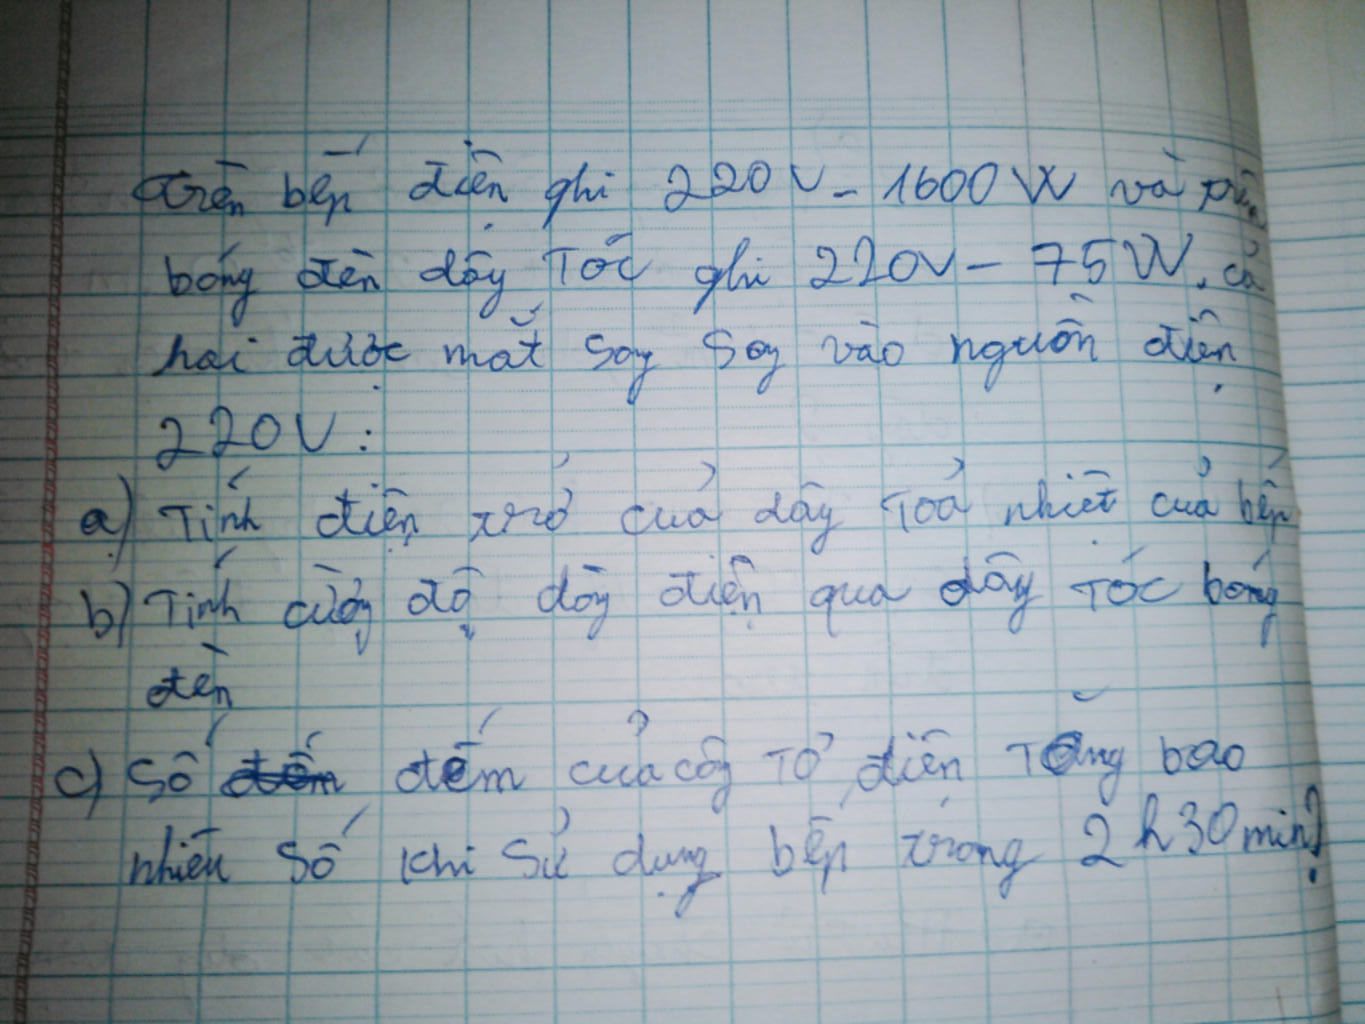 Trên bếp điện ghi 220V - 1600W và trên
bóng đèn dây Tóc ghi 220V - 75W. cả
hai được mắt Soy Soy vào nguồn điện
220V:
a) Tính điện trở của dây Toả nhiệt của bếp
b) Tính cường độ dòng điện qua dây Tóc bóng
đèn
c) Số đếm của công Tơ điện Tăng bao
nhiêu Số khi Sử dụng bếp trong 2h30min?